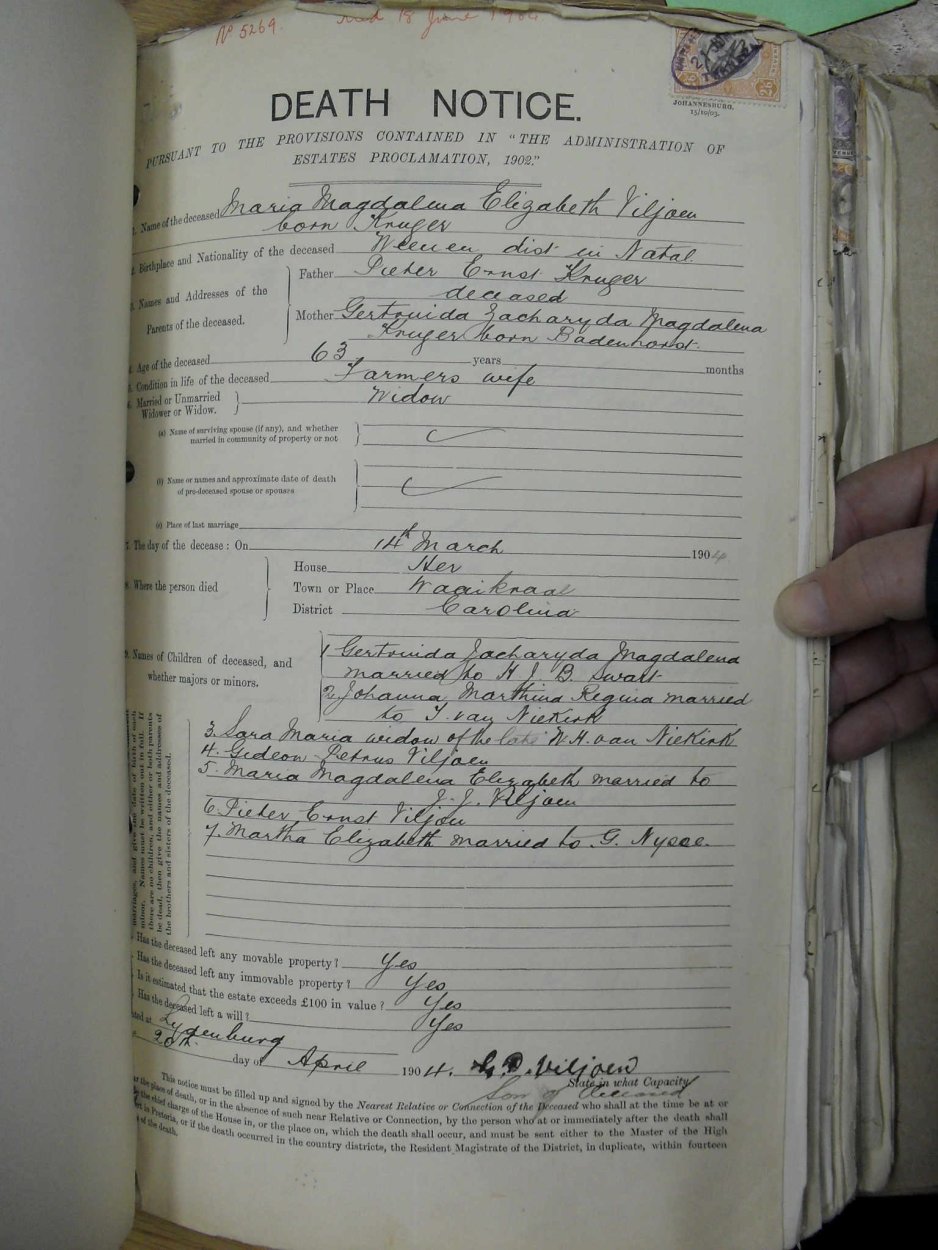 No 5269. 18 June 1904
JOHANNESBURG.
15/10/03.
DEATH NOTICE.
PURSUANT TO THE PROVISIONS CONTAINED IN "THE ADMINISTRATION OF
ESTATES PROCLAMATION, 1902."
1. Name of the deceased Maria Magdalena Elizabeth Viljoen
born Kruger
2. Birthplace and Nationality of the deceased Weenen dist in Natal
3. Names and Addresses of the Parents of the deceased.
Father Pieter Ernst Kruger
deceased
Mother Gertruida Zacharyda Magdalena
Kruger born Badenhorst.
4. Age of the deceased 63 years months
5. Condition in life of the deceased Farmers wife
6. Married or Unmarried
Widower or Widow. Widow
(a) Name of surviving spouse (if any), and whether
married in community of property or not
(b) Name or names and approximate date of death
of pre-deceased spouse or spouses
(c) Place of last marriage
7. The day of the decease: On 14th March 1904
8. Where the person died
House Her
Town or Place Waaikraal
District Carolina
9. Names of Children of deceased, and
whether majors or minors.
1 Gertruida Zacharyda Magdalena
married to H. J. B. Swart
2. Johanna Marthina Regina married
to T. van Niekirk
3. Sara Maria widow of the late W. H. van Niekirk
4. Gideon Petrus Viljoen
5. Maria Magdalena Elizabeth married to
J. J. Viljoen
6. Pieter Ernst Viljoen
7. Martha Elizabeth married to G. Nysoe.
marriages, and give the date of birth of each
minor. Names must be written out in full. If
there are no children, and either or both parents
be dead, then give the names and addresses of
the brothers and sisters of the deceased.
Has the deceased left any movable property? Yes
Has the deceased left any immovable property? Yes
Is it estimated that the estate exceeds £100 in value? Yes
Has the deceased left a will? Yes
Dated at Lydenburg
20th day of April 1904. G. P. Viljoen
State in what Capacity
Son of deceased
This notice must be filled up and signed by the Nearest Relative or Connection of the Deceased who shall at the time be at or
the place of death, or in the absence of such near Relative or Connection, by the person who at or immediately after the death shall
the chief charge of the House in, or the place on, which the death shall occur, and must be sent either to the Master of the High
in Pretoria, or if the death occurred in the country districts, the Resident Magistrate of the District, in duplicate, within fourteen
of the death.